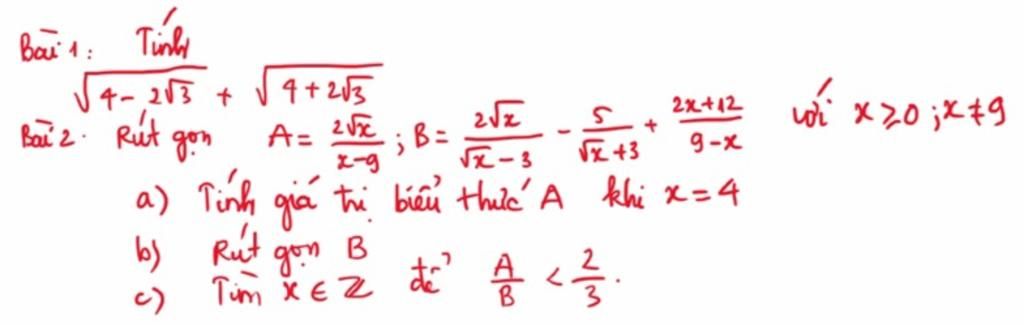 Bài 1: Tính
√(4 - 2√3) + √(4 + 2√3)
Bài 2. Rút gọn A = 2√x/(x-9) ; B = 2√x/(√x - 3) - 5/(√x + 3) + (2x+12)/(9-x) với x ≥ 0 ; x ≠ 9
a) Tính giá trị biểu thức A khi x = 4
b) Rút gọn B
c) Tìm x ∈ ℤ để A/B < 2/3.